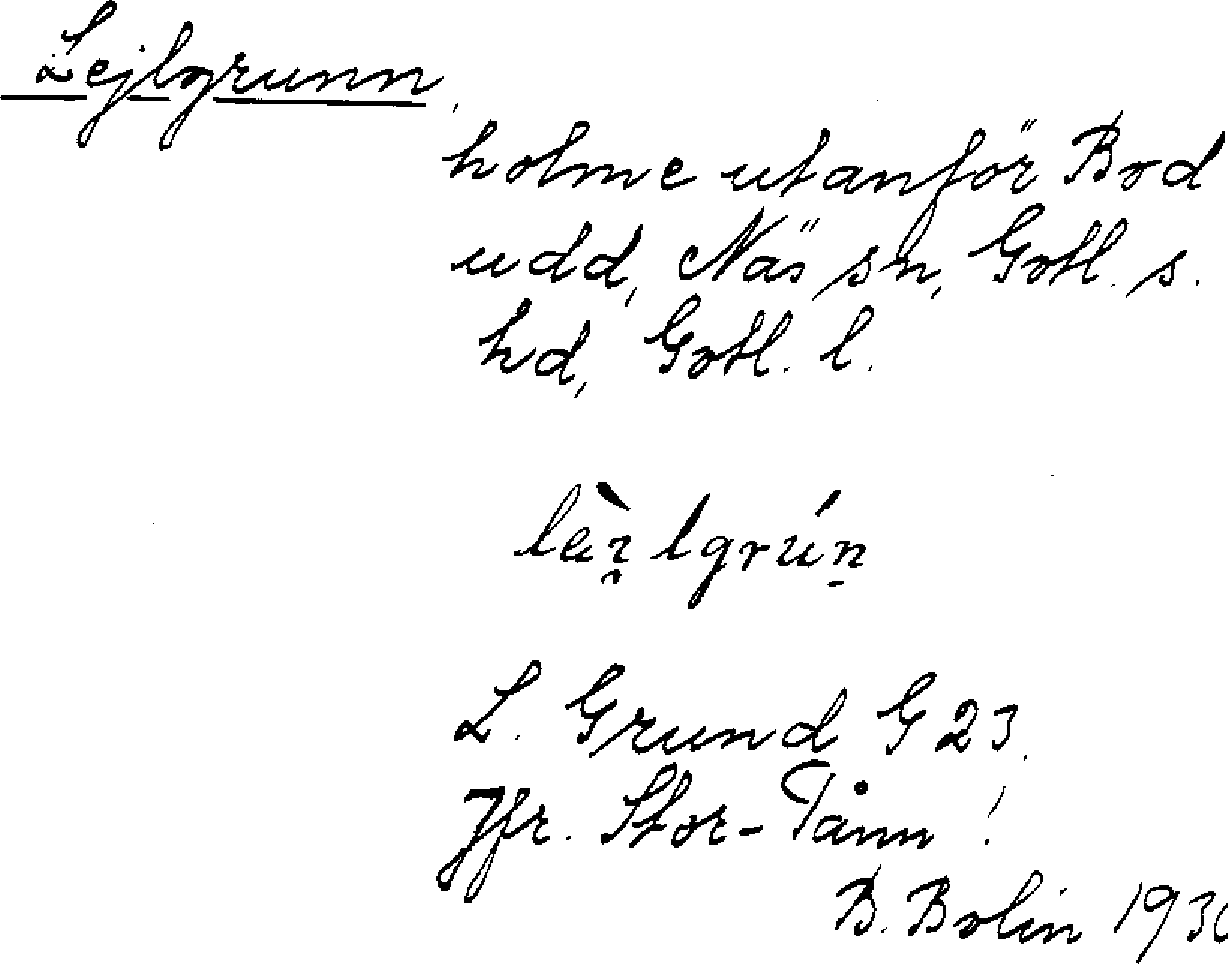 Lejlgrunn,
holme utanför Bod
udd, Näs sn, Gotl. s.
hd, Gotl. l.
L. Grund G 23.
Jfr. Stor-Tånn!
B. Bolin 193